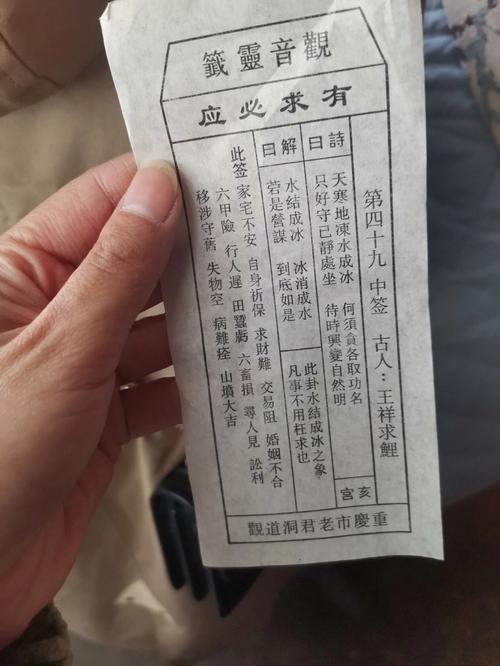 觀音靈籤
有求必应
第四十九 中签 古人：王祥求鯉
詩曰
天寒地凍水成冰 何須貪各取功名
只好守己靜處坐 待時興變自然明
亥宮
解曰
水結成冰 冰消成水
若是營謀 到底如是
此卦水結成冰之象
凡事不用枉求也
此签
家宅不安 自身祈保 求財難 交易阻 婚姻不合
六甲險 行人遲 田蠶虧 六畜損 尋人見 訟利
移涉守舊 失物空 病難痊 山墳大吉
重慶市老君洞道觀